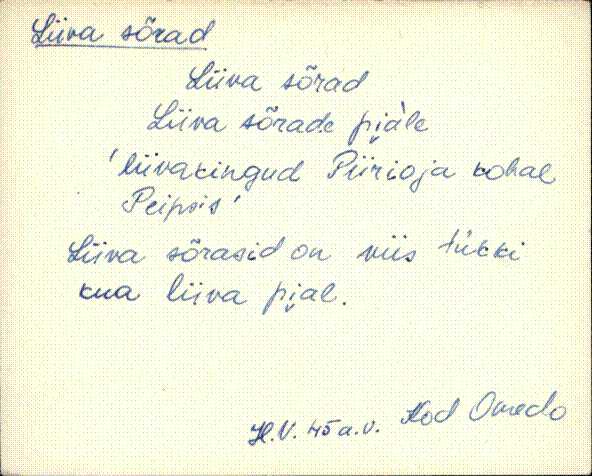 Liiva sõrad
Liiva sõrad
Liiva sõrade pi̬àle
'liivakingud Piirioja kohal
Peipsis'
Liiva sõrasid on viis tükki
kua liiva pi̬al.
H.V. 45 a.v. Kod Omedo